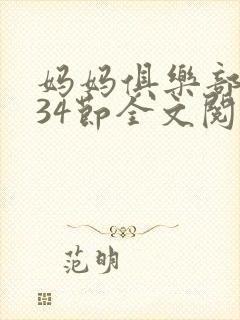 妈妈俱樂部
34節全文閱
范明